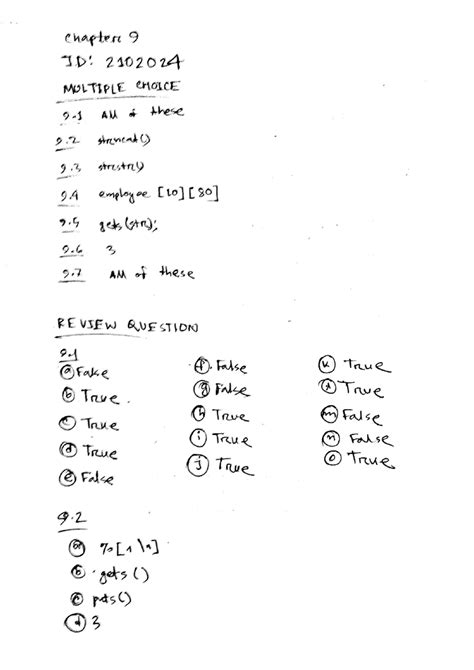 Chapter 9
ID: 2102024
MULTIPLE CHOICE
9.1 All of these
9.2 strncat()
9.3 strstr()
9.4 employee [10][30]
9.5 gets(str);
9.6 3
9.7 All of these
REVIEW QUESTION
9.1
a False
b True.
c True
d True
e False
f. False
g False
h True
i True
j True
k True
l True
m False
n False
o True
9.2
a %[^\n]
b gets()
c puts()
d 3